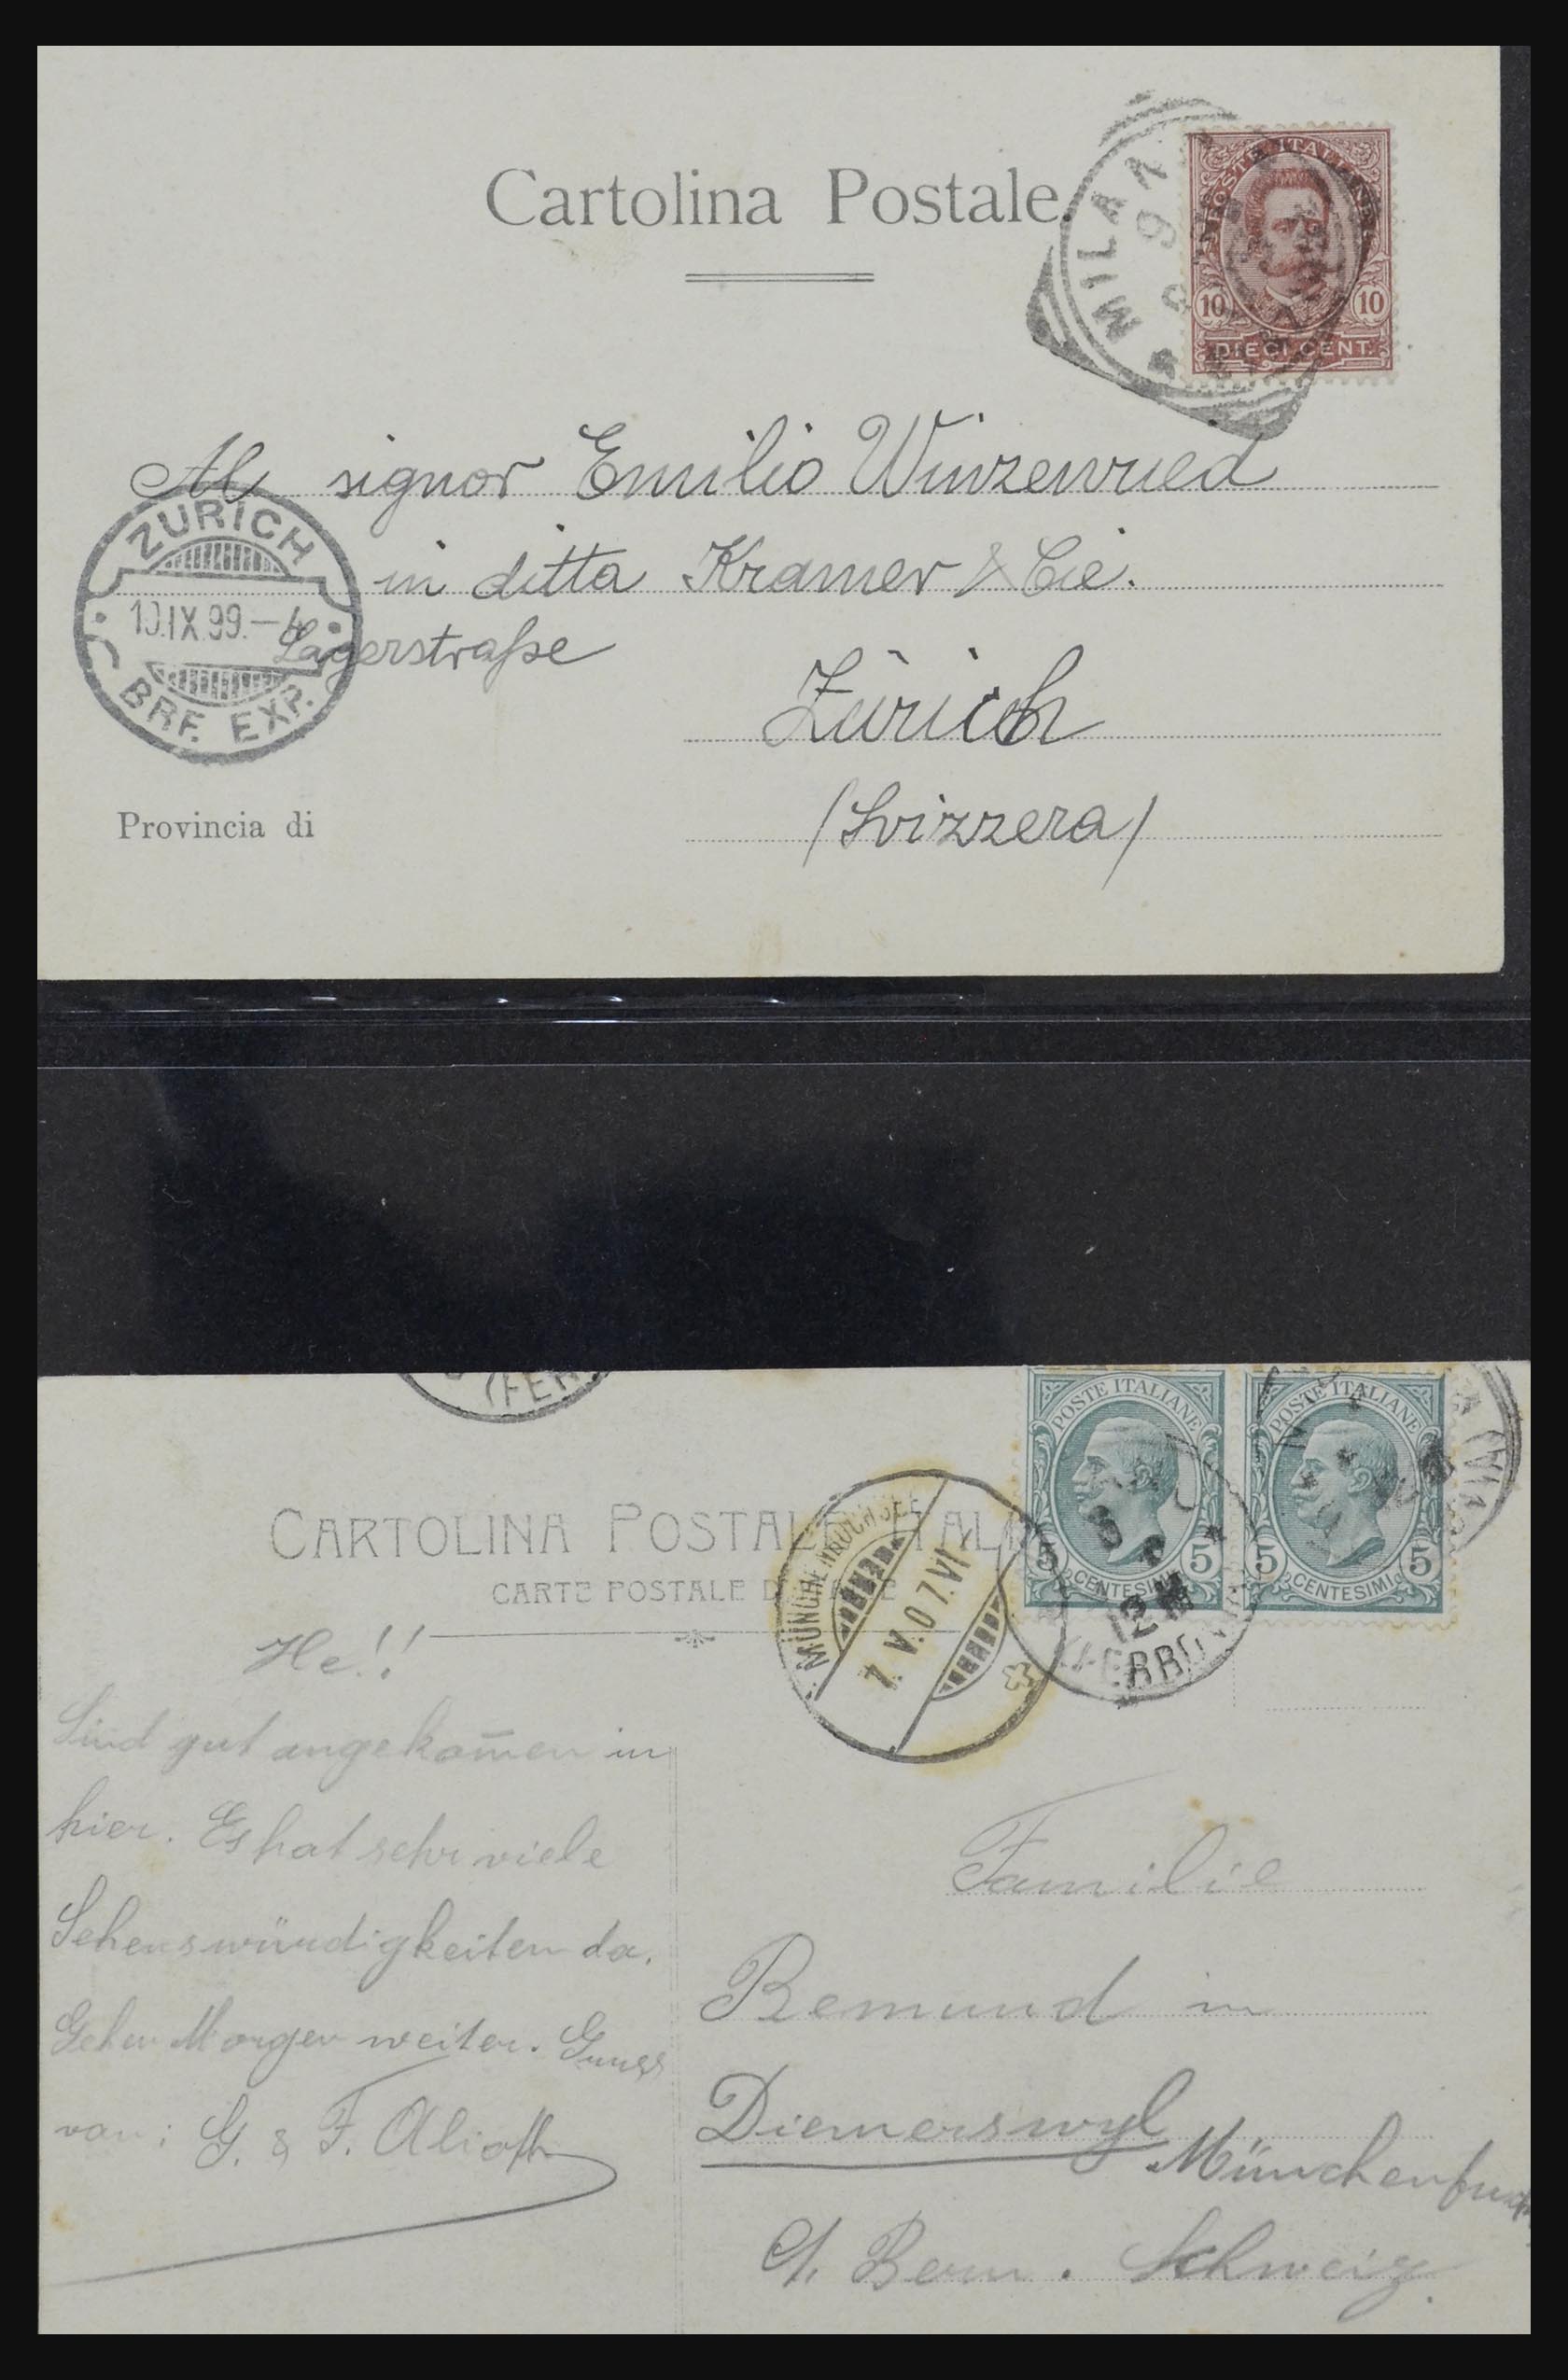 Cartolina Postale.
MILA
POSTE ITALIANE
10 10
DIECI CENT.
Al signor Emilio Winzenried
ZÜRICH
in ditta Kramer & Cie.
10.IX.99.—4
Lagerstraße
BRF. EXP.
Zürich
Provincia di
(Svizzera)
(FER
POSTE ITALIANE
POSTE ITALIANE
CARTOLINA POSTALE ITAL
MÜNCHENBUCHSEE
7. V. 07. VI
5 5
CENTESIMI
5 5
CENTESIMI
12 M
(FERROV
CARTE POSTALE D
He!!
Sind gut angekom̄en in
hier. Es hat sehr viele
Sehenswürdigkeiten da.
Gehen Morgen weiter. Gruss
von: G. & F. Alioth
Familie
Remund in
Diemerswyl
Münchenbuch
Ct. Bern. Schweiz.